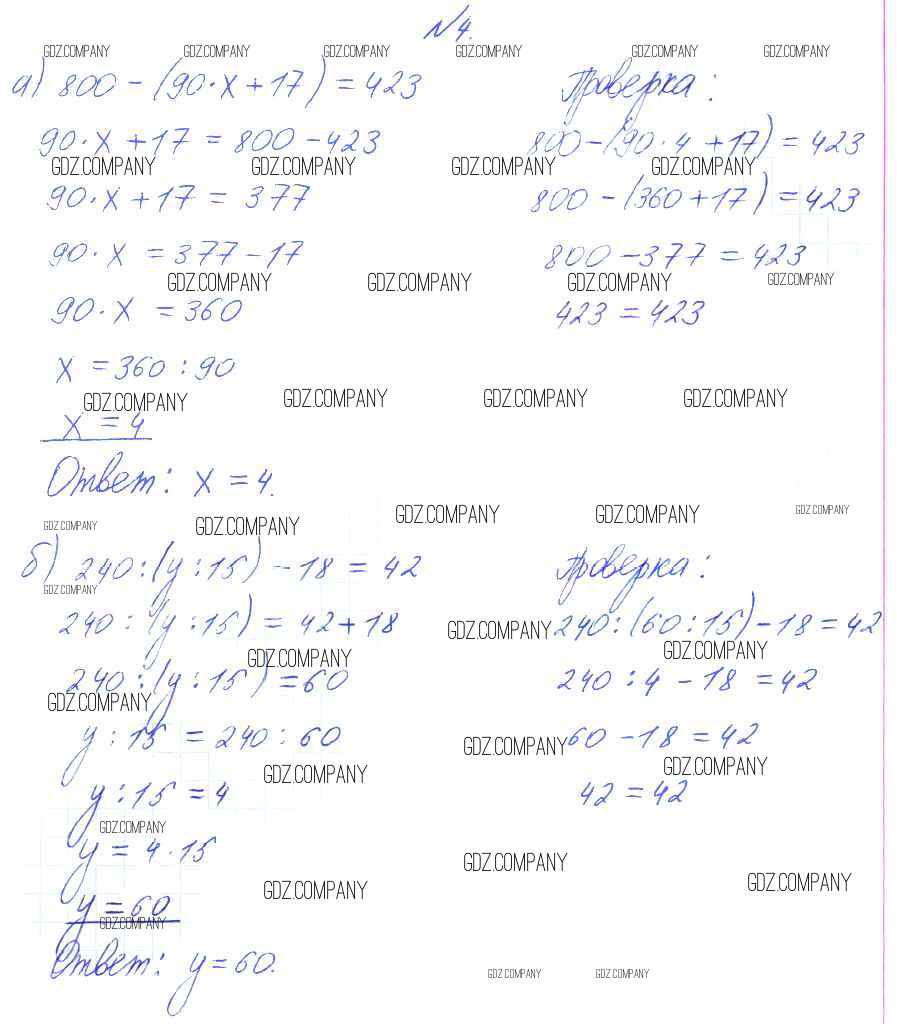 №4.
а) 800 - (90·x + 17) = 423
90·x + 17 = 800 - 423
90·x + 17 = 377
90·x = 377 - 17
90·x = 360
x = 360 : 90
x = 4
Ответ: x = 4.
Проверка:
800 - (90·4 + 17) = 423
800 - (360 + 17) = 423
800 - 377 = 423
423 = 423
б) 240 : (y : 15) - 18 = 42
240 : (y : 15) = 42 + 18
240 : (y : 15) = 60
y : 15 = 240 : 60
y : 15 = 4
y = 4·15
y = 60
Ответ: y = 60.
Проверка:
240 : (60 : 15) - 18 = 42
240 : 4 - 18 = 42
60 - 18 = 42
42 = 42
GDZ.COMPANY GDZ.COMPANY GDZ.COMPANY GDZ.COMPANY GDZ.COMPANY GDZ.COMPANY
GDZ.COMPANY GDZ.COMPANY GDZ.COMPANY GDZ.COMPANY
GDZ.COMPANY GDZ.COMPANY GDZ.COMPANY GDZ.COMPANY
GDZ.COMPANY GDZ.COMPANY GDZ.COMPANY GDZ.COMPANY
GDZ.COMPANY GDZ.COMPANY GDZ.COMPANY GDZ.COMPANY GDZ.COMPANY
GDZ.COMPANY
GDZ.COMPANY
GDZ.COMPANY GDZ.COMPANY
GDZ.COMPANY
GDZ.COMPANY
GDZ.COMPANY GDZ.COMPANY
GDZ.COMPANY
GDZ.COMPANY
GDZ.COMPANY GDZ.COMPANY
GDZ.COMPANY
GDZ.COMPANY GDZ.COMPANY